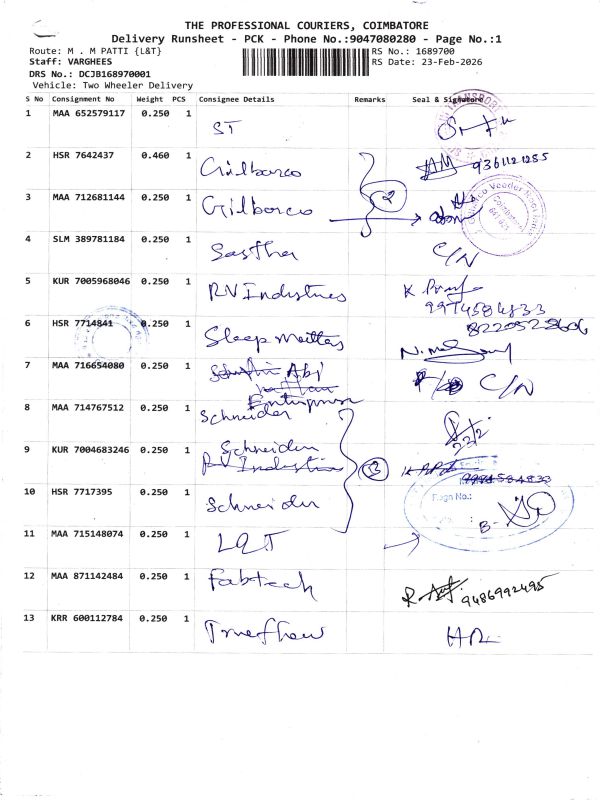 THE PROFESSIONAL COURIERS, COIMBATORE
Delivery Runsheet - PCK - Phone No.:9047080280 - Page No.:1
Route: M . M PATTI {L&T} RS No.: 1689700
Staff: VARGHEES RS Date: 23-Feb-2026
DRS No.: DCJB168970001
Vehicle: Two Wheeler Delivery
S No Consignment No Weight PCS Consignee Details Remarks Seal & Signature
1 MAA 652579117 0.250 1 ST
2 HSR 7642437 0.460 1 Gilbarco 9361121285
3 MAA 712681144 0.250 1 Gilbarco 2
4 SLM 389781184 0.250 1 Sastha C/N
5 KUR 7005968046 0.250 1 RV Industries K
6 HSR 7714841 0.250 1 Sleep
7 MAA 716654080 0.250 1 Abi C/N
Enterprise
8 MAA 714767512 0.250 1 Schneider
9 KUR 7004683246 0.250 1 Schneider 3
RV Industries
10 HSR 7717395 0.250 1 Schneider Regn No.:
11 MAA 715148074 0.250 1 L&T
12 MAA 871142484 0.250 1 Fabtech 9486992495
13 KRR 600112784 0.250 1